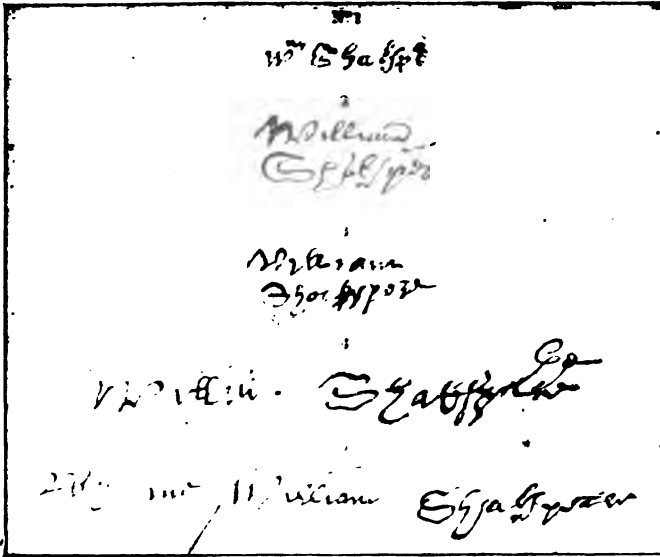 Nº 1
Wm Shakspē
2
William
Shakspēr
William
Shakspere
Willm Shakspere
By me William Shakspear